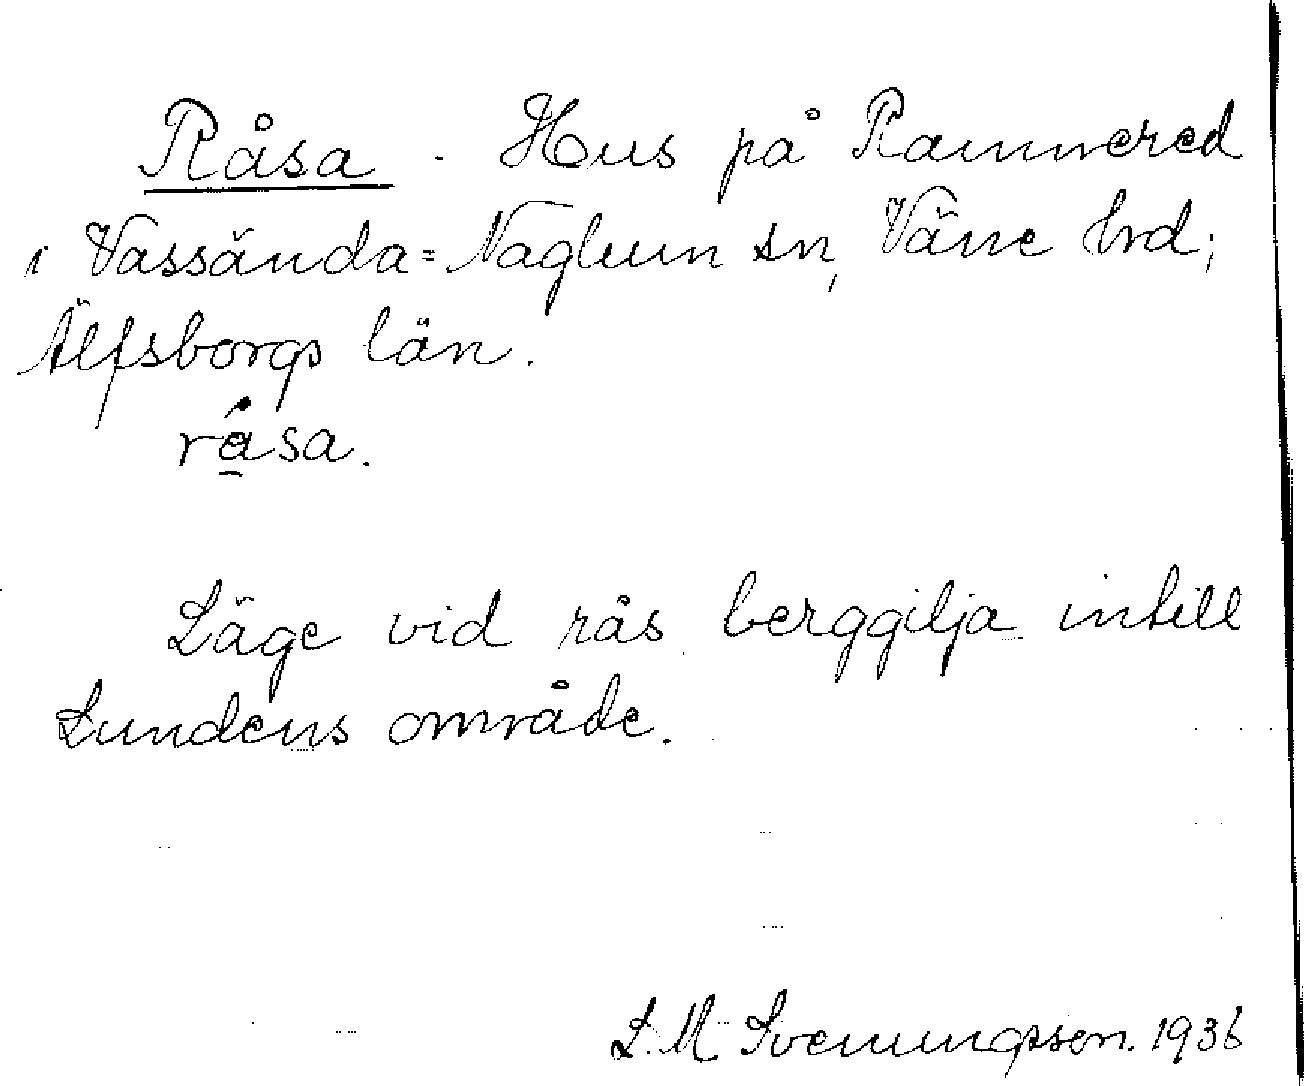 Råsa. Hus på Rannered
i Vassända=Naglum sn, Väne hrd;
Älfsborgs län.
råsa.
Läge vid rås berggilja intill
Lundens område.
L. M. Svenungsson. 1936